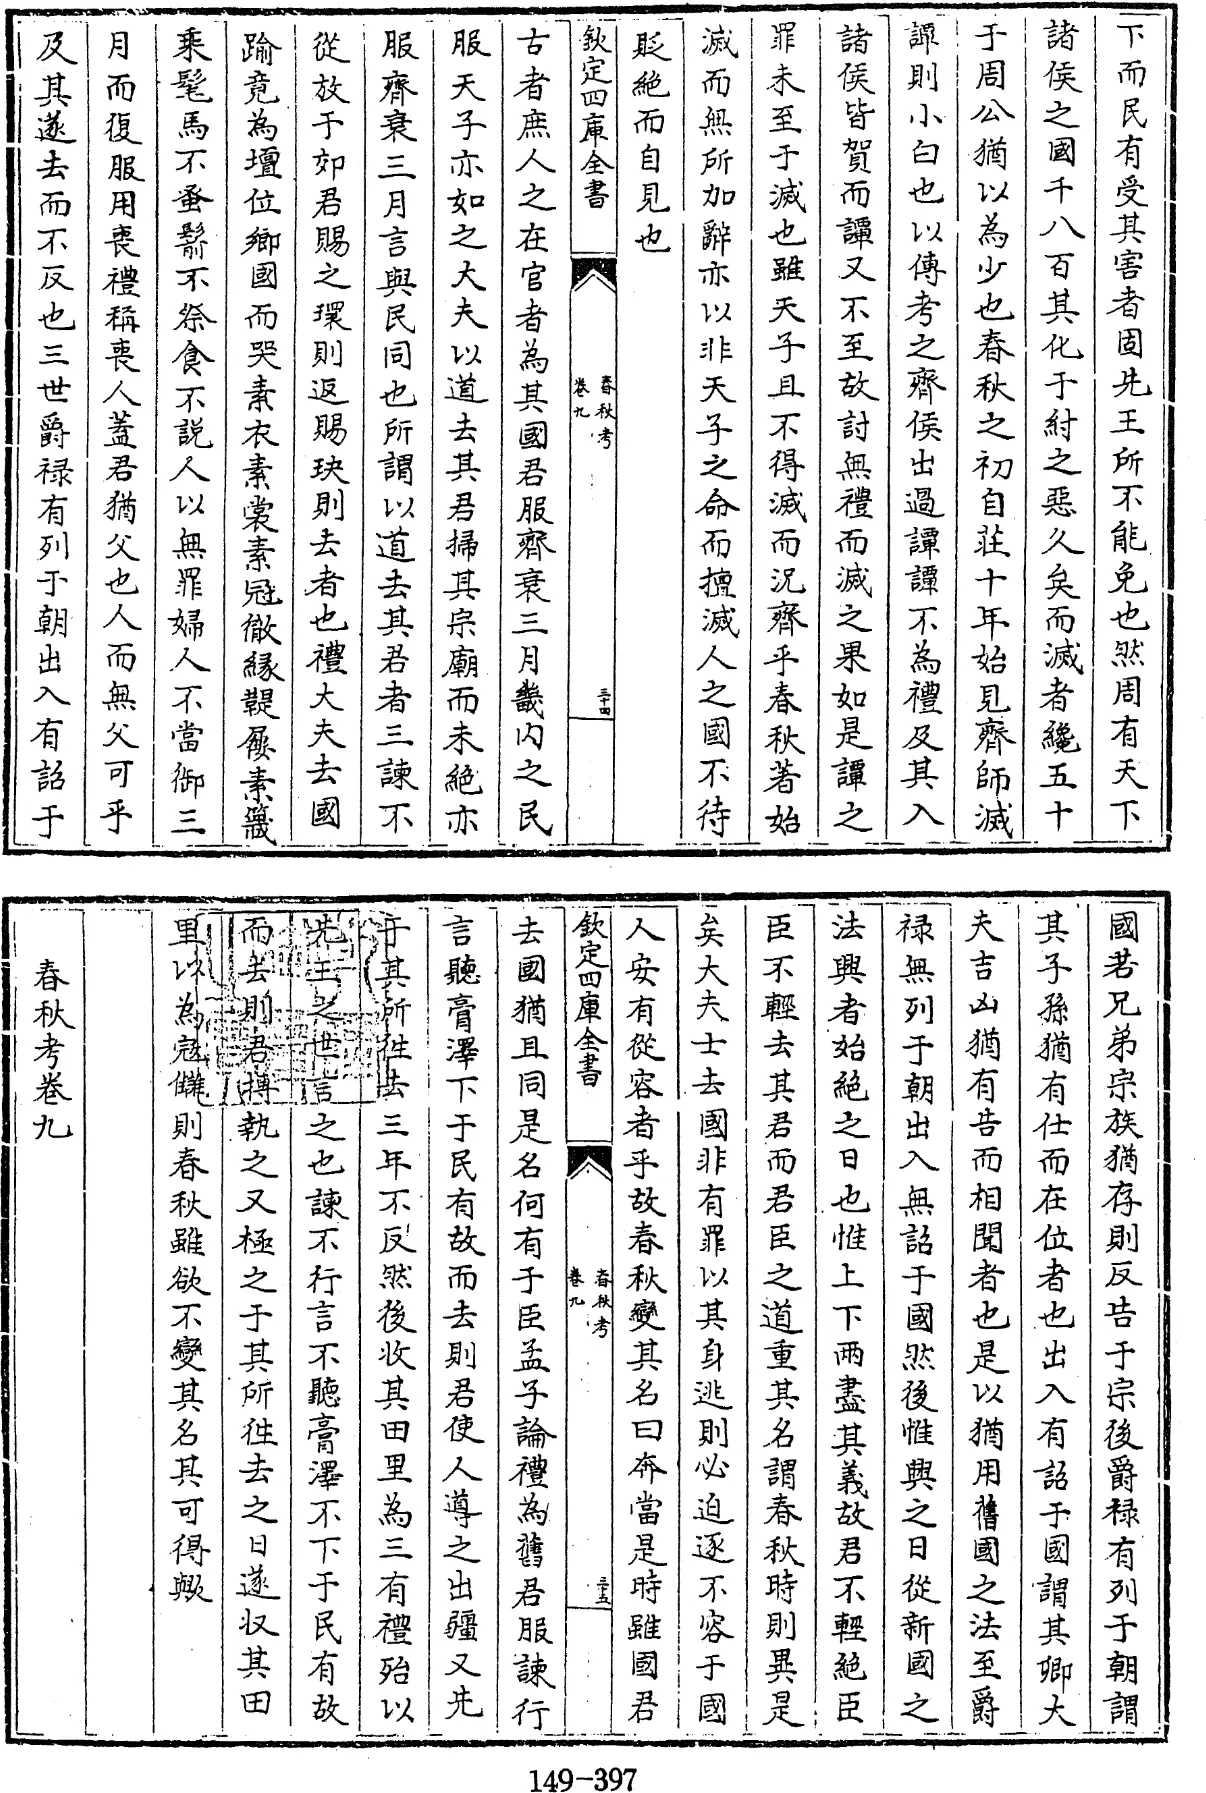 下而民有受其害者固先王所不能免也然周有天下
諸侯之國千八百其化于紂之惡久矣而滅者纔五十
于周公猶以為少也春秋之初自莊十年始見齊師滅
譚則小白也以傳考之齊侯出過譚譚不為禮及其入
諸侯皆賀而譚又不至故討無禮而滅之果如是譚之
罪未至于滅也雖天子且不得滅而況齊乎春秋著始
滅而無所加辭亦以非天子之命而擅滅人之國不待
貶絶而自見也
欽定四庫全書
春秋考
卷九
三十四
古者庶人之在官者為其國君服齊衰三月畿內之民
服天子亦如之大夫以道去其君掃其宗廟而未絶亦
服齊衰三月言與民同也所謂以道去其君者三諫不
從放于郊君賜之環則返賜玦則去者也禮大夫去國
踰竟為壇位鄉國而哭素衣素裳素冠徹緣鞮屨素簚
乘髦馬不蚤鬋不祭食不說人以無罪婦人不當御三
月而復服用喪禮稱喪人蓋君猶父也人而無父可乎
及其遂去而不反也三世爵祿有列于朝出入有詔于
國若兄弟宗族猶存則反告于宗後爵祿有列于朝謂
其子孫猶有仕而在位者也出入有詔于國謂其卿大
夫吉凶猶有告而相聞者也是以猶用舊國之法至爵
祿無列于朝出入無詔于國然後惟興之日從新國之
法興者始絶之日也惟上下兩盡其義故君不輕絶臣
臣不輕去其君而君臣之道重其名謂春秋時則異是
矣大夫士去國非有罪以其身逃則必迫逐不容于國
人安有從容者乎故春秋變其名曰奔當是時雖國君
欽定四庫全書
春秋考
卷九
三十五
去國猶且同是名何有于臣孟子論禮為舊君服諫行
言聽膏澤下于民有故而去則君使人導之出疆又先
于其所往去三年不反然後收其田里為三有禮殆以
先王之世言之也諫不行言不聽膏澤不下于民有故
而去則君搏執之又極之于其所往去之日遂收其田
里以為寇讎則春秋雖欲不變其名其可得歟
春秋考卷九
149-397